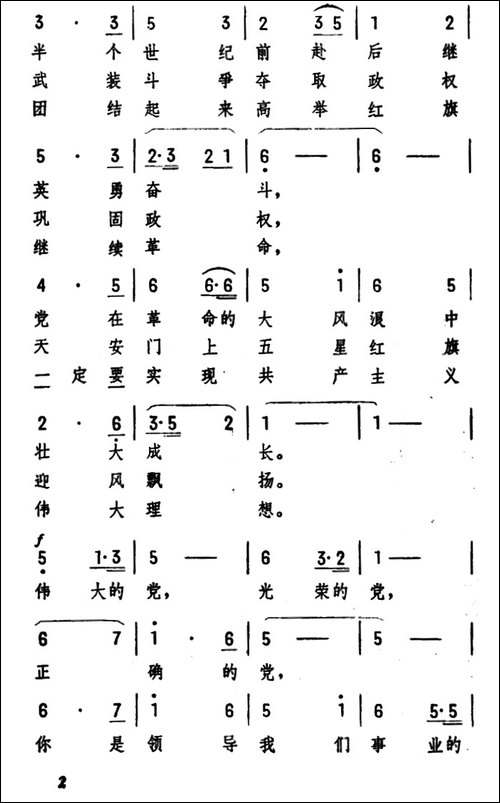 3 · 3 | 5 3 | 2 3 5 | 1 2
半 个 世 纪 前 赴 后 继
武 装 斗 爭 夺 取 政 权
团 结 起 来 高 举 红 旗
5 · 3 | 2·3 2 1 | 6 — | 6 —
英 勇 奋 斗,
巩 固 政 权,
继 续 革 命,
4 · 5 | 6 6·6 | 5 i | 6 5
党 在 革 命的 大 风 浪 中
天 安 门 上 五 星 红 旗
一 定 要 实 现 共 产 主 义
2 · 6 | 3·5 2 | 1 — | 1 —
壮 大 成 长。
迎 风 飘 扬。
伟 大 理 想。
f
5 1·3 | 5 — | 6 3·2 | 1 —
伟 大的 党, 光 荣的 党,
6 7 | i · 6 | 5 — | 5 —
正 确 的 党,
6 · 7 | i 6 | 5 i | 6 5·5
你 是 领 导 我 们 事 业的
2